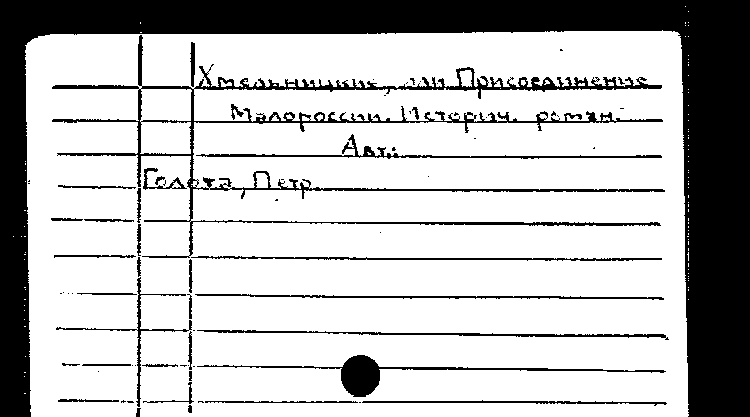 Хмельницкие, или Присоединение
Малороссии. Историч. роман.
Авт.:
Голота, Петр.